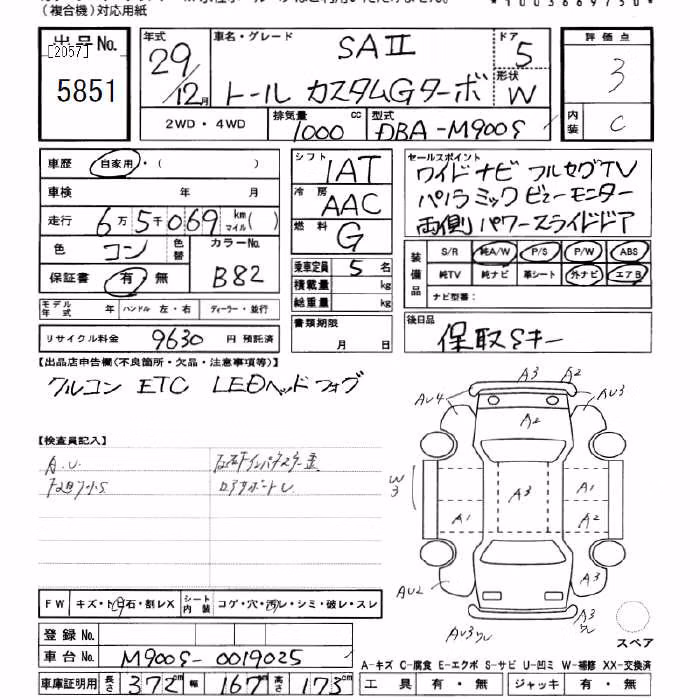 （複合機）対応用紙
*1003669750*
出品No.
[2057]
5851
年式
29
12月
車名・グレード
SAⅡ
トール カスタムGターボ
ドア
5
形状
W
2WD・4WD
排気量
1000 cc
型式
DBA-M900S
評価点
3
内装
C
車歴 自家用・( )
車検 年 月
走行 6万5千069 km マイル( )
色 コン 色替
カラーNo.
B82
保証書 有・無
モデル年式 年 ハンドル 左・右 ディーラー・並行
リサイクル料金 9630 円 預託済
シフト
IAT
冷房
AAC
燃料
G
乗車定員 5 名
積載量 kg
総重量 kg
書類期限
月 日
セールスポイント
ワイドナビ フルセグTV
パノラミックビューモニター
両側パワースライドドア
装備品
S/R 純A/W P/S P/W ABS
純TV 純ナビ 革シート 外ナビ エアB
ナビ型番：
後日品
保取Sキー
【出品店申告欄(不良箇所・欠品・注意事項等)】
クルコン ETC LEDヘッドフォグ
【検査員記入】
A.U.
FW キズ・ト石・割レX
シート内装 コゲ・穴・汚レ・シミ・破レ・スレ
登録No.
車台No. M900S-0019025
車庫証明用 長さ 372cm 幅 167cm 高さ 173cm
A3 A2
AU4 AU3
A2
W3
A3
A1
A1 A2
AU2 A3
AU3ワレ
A3ワレ
スペア
A-キズ C-腐食 E-エクボ S-サビ U-凹ミ W-補修 XX-交換済
工具 有・無 ジャッキ 有・無